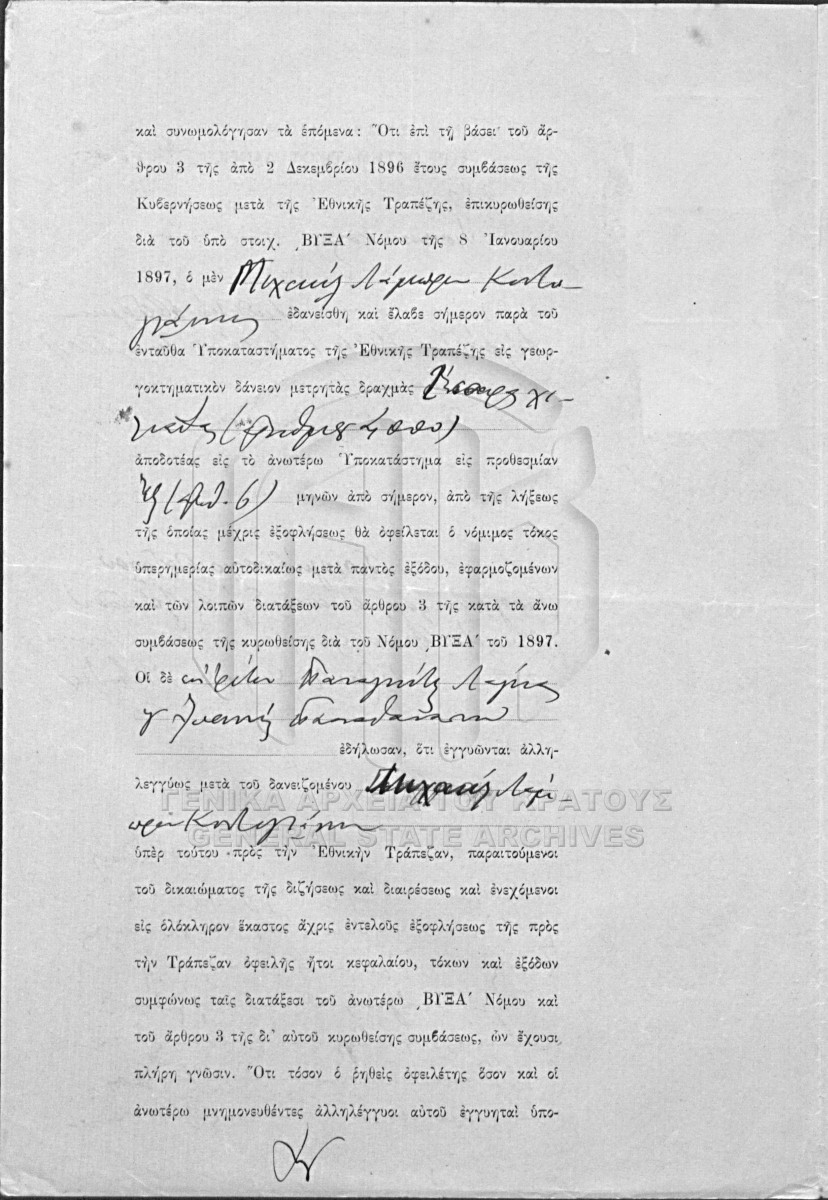 καὶ συνωμολόγησαν τὰ ἑπόμενα: Ὅτι ἐπὶ τῇ βάσει τοῦ ἄρ-
θρου 3 τῆς ἀπὸ 2 Δεκεμβρίου 1896 ἔτους συμβάσεως τῆς
Κυβερνήσεως μετὰ τῆς Ἐθνικῆς Τραπέζης, ἐπικυρωθείσης
διὰ τοῦ ὑπὸ στοιχ. ͵ΒΥΞΑ΄ Νόμου τῆς 8 Ἰανουαρίου
1897, ὁ μὲν Μιχαὴλ Λάμπρου Κοντο-
γιάννης ἐδανείσθη καὶ ἔλαβε σήμερον παρὰ τοῦ
ἐνταῦθα Ὑποκαταστήματος τῆς Ἐθνικῆς Τραπέζης εἰς γεωρ-
γοκτηματικὸν δάνειον μετρητὰς δραχμὰς
ἀποδοτέας εἰς τὸ ἀνωτέρω Ὑποκατάστημα εἰς προθεσμίαν
ἓξ (ἀριθ. 6) μηνῶν ἀπὸ σήμερον, ἀπὸ τῆς λήξεως
τῆς ὁποίας μέχρις ἐξοφλήσεως θὰ ὀφείλεται ὁ νόμιμος τόκος
ὑπερημερίας αὐτοδικαίως μετὰ παντὸς ἐξόδου, ἐφαρμοζομένων
καὶ τῶν λοιπῶν διατάξεων τοῦ ἄρθρου 3 τῆς κατὰ τὰ ἄνω
συμβάσεως τῆς κυρωθείσης διὰ τοῦ Νόμου ͵ΒΥΞΑ΄ τοῦ 1897.
Οἱ δὲ
ἐδήλωσαν, ὅτι ἐγγυῶνται ἀλλη-
λεγγύως μετὰ τοῦ δανειζομένου Μιχαὴλ Λάμ-
πρου Κοντογιάννη
ΓΕΝΙΚΑ ΑΡΧΕΙΑ ΤΟΥ ΚΡΑΤΟΥΣ
GENERAL STATE ARCHIVES
ὑπὲρ τούτου πρὸς τὴν Ἐθνικὴν Τράπεζαν, παραιτούμενοι
τοῦ δικαιώματος τῆς διζήσεως καὶ διαιρέσεως καὶ ἐνεχόμενοι
εἰς ὁλόκληρον ἕκαστος ἄχρις ἐντελοῦς ἐξοφλήσεως τῆς πρὸς
τὴν Τράπεζαν ὀφειλῆς ἤτοι κεφαλαίου, τόκων καὶ ἐξόδων
συμφώνως ταῖς διατάξεσι τοῦ ἀνωτέρω ͵ΒΥΞΑ΄ Νόμου καὶ
τοῦ ἄρθρου 3 τῆς δι' αὐτοῦ κυρωθείσης συμβάσεως, ὧν ἔχουσι
πλήρη γνῶσιν. Ὅτι τόσον ὁ ῥηθεὶς ὀφειλέτης ὅσον καὶ οἱ
ἀνωτέρω μνημονευθέντες ἀλληλέγγυοι αὐτοῦ ἐγγυηταὶ ὑπο-